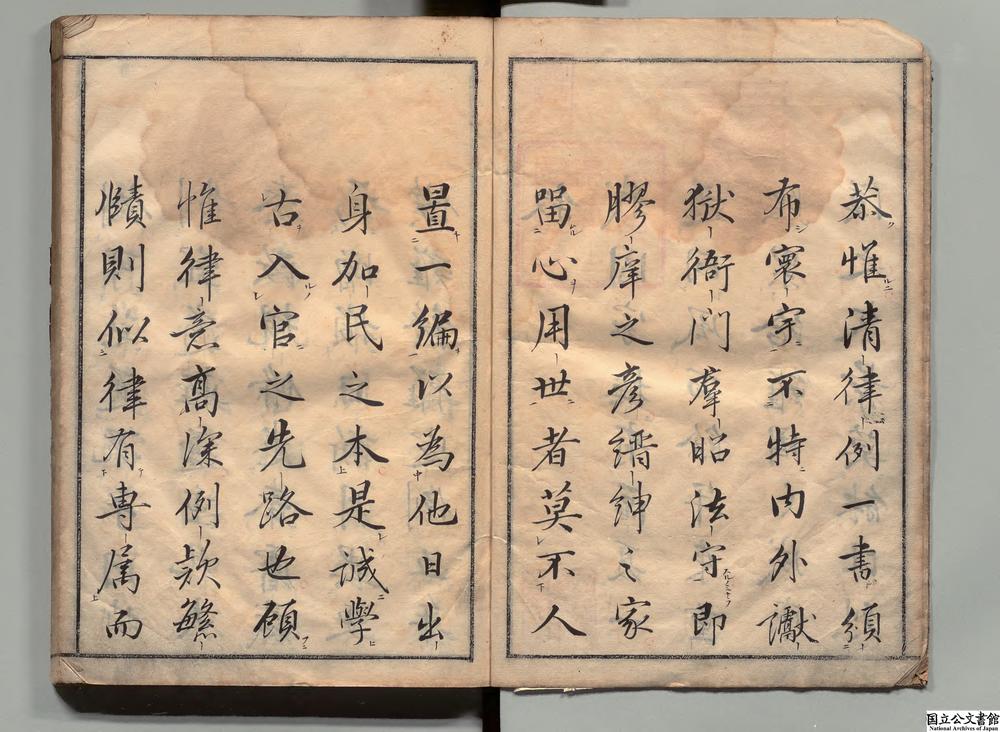 恭惟清律例一書頒
布寰宇不特内外讞
獄衙門羣昭法守即
膠庠之彦縉紳之家
畱心用世者莫不人
置一編以為他日出
身加民之本是誠學
古入官之先路也顧
惟律意高深例款繁
賾則似律有專属而
国立公文書館
National Archives of Japan